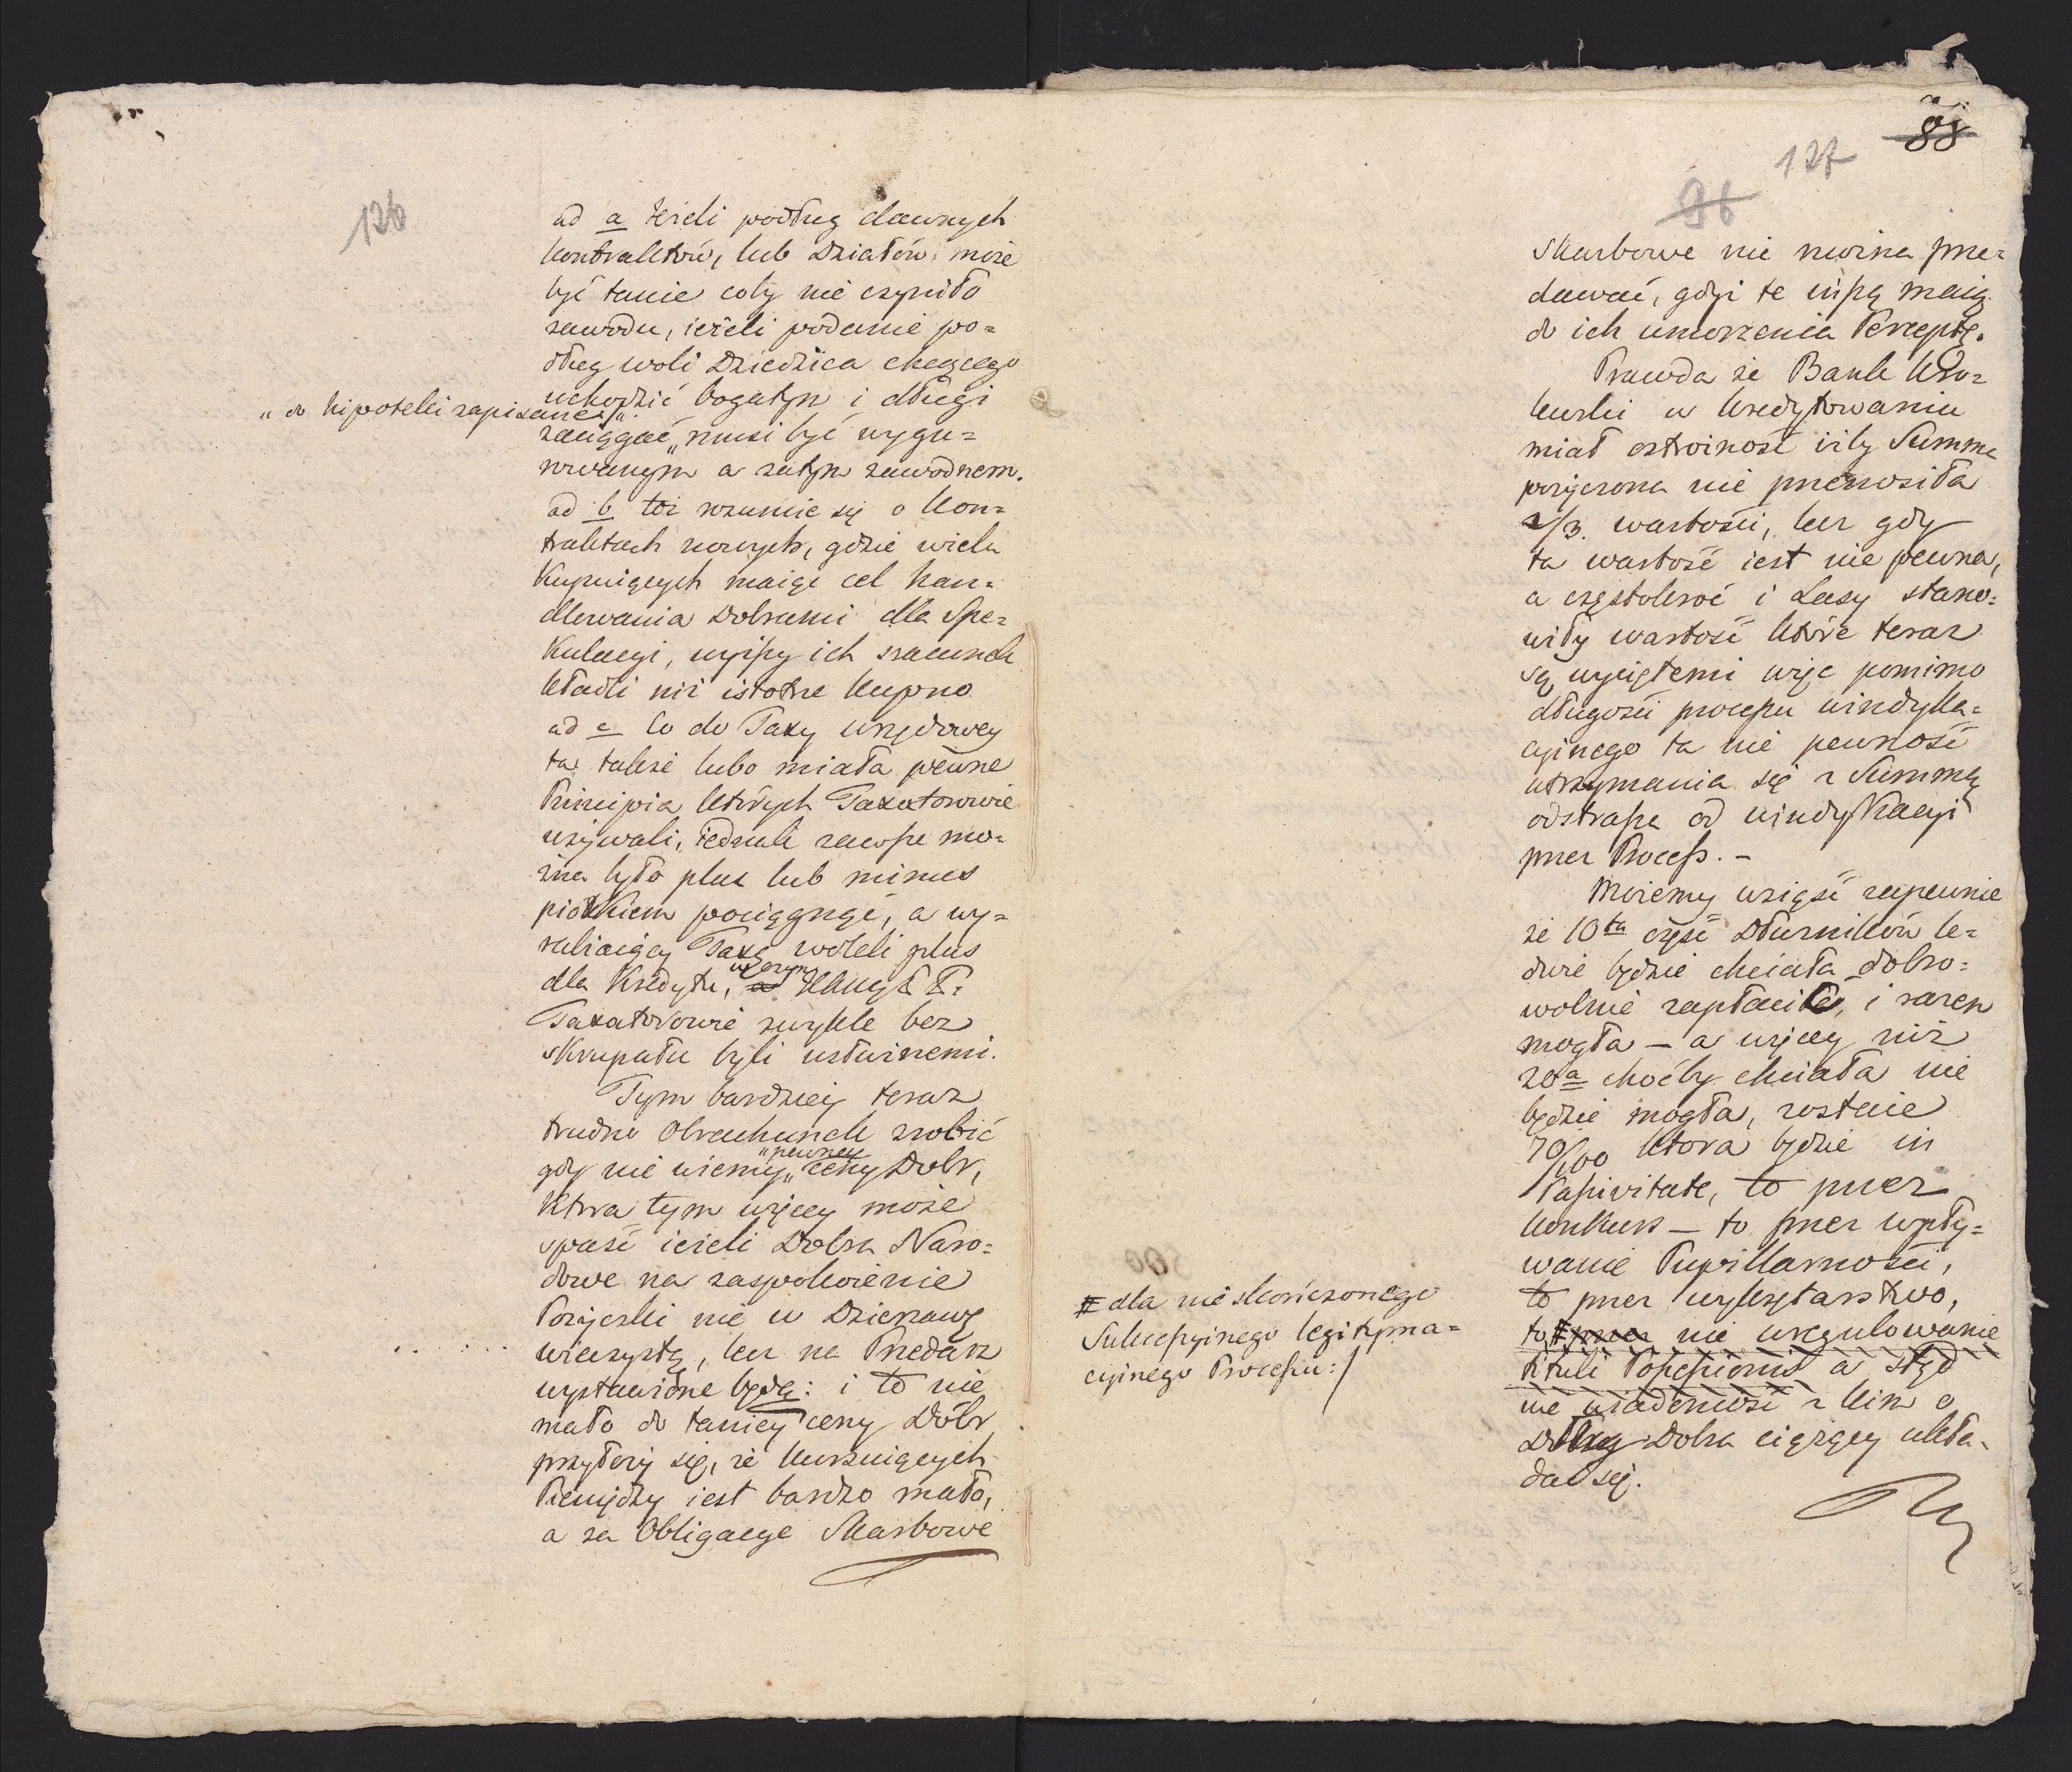 126
ad a Jeżeli podług dawnych
kontraktów, lub Działów, może
być takie coby nie czyniło
zawodu, ieżeli podanie po=
dług woli Dziedzica chcącego
uchodzić bogatym i długi
„do hipoteki zapisane”
zaciągać „ musi być wygu=
rowanym a zatym zawodnem.
ad b toż rozumie się o kon=
traktach nowych, gdzie wielu
Kupuiących maiąc cel han=
dlowania Dobrami dla Spe=
kulacyi, wyższy ich szacunek
kładli niż istotne kupno
ad c Co do Taxy urzędowey
ta także lubo miała pewne
Principia których Taxatorowie
używali, iednak zawsze mo=
żna było plus lub minus
piórkiem pociągnąć, a wy=
rabiaiący Taxę woleli plus
dla Kredytu, w czym
Taxatorowie zwykle bez
skrupułu byli usłużnemi.
Tym bardziey teraz
trudno Obrachunek zrobić
„pewney
gdy nie wiemy „ ceny Dobr,
która tym więcey może
spaść ieżeli Dobra Naro=
dowe na zaspokoienie
Pożyczki nie w Dzierzawę
wieczystą, lecz na Przedarz
wystawione będą: i to nie
mało do taniey ceny Dóbr
przyłoży się, że kurzuiących
Pieniędzy iest bardzo mało,
a za Obligacye Skarbowe
88
127
96
Skarbowe nie można prze=
dawać, gdyż te inszą maią
do ich umorzenia Perceptę.
Prawda że Bank Kro=
lewski w kredytowaniu
miał ostrożność iżby Summa
pożyczona nie przenosiła
2/3. wartości, lecz gdy
ta wartość iest nie pewna,
a częstokroć i Lasy stano=
wiły wartość które teraz
są wyciętemi więc pomimo
długości processu windyka=
cyinego ta nie pewność
utrzymania się z Summą
odstrasza od windykacyi
przez Process. –
Możemy wziąść zapewnie
że 10ta część Dłużników le=
dwie będzie chciała dobro=
wolnie zapłacić, i razem
mogła – a więcey niż
20a choćby chciała nie
będzie mogła, zostaie
70/100 która będzie in
Passivitate, to przez
konkurs – to przez wpły=
wanie Pupillarności,
to przez
to # przez nie uregulowanie
tituli Possessionis a ztąd
nie wiadomość z kim o
Dług Dobra ciążący ukła=
dać się.
# dla nieskończonego
Sukcessyinego legityma=
cyinego Processu:/